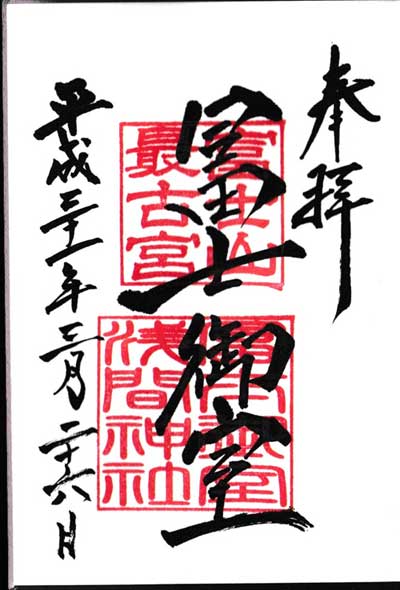 奉拝
冨士御室
富士山
最古宮
冨士御室
浅間神社
平成三十一年三月二十六日